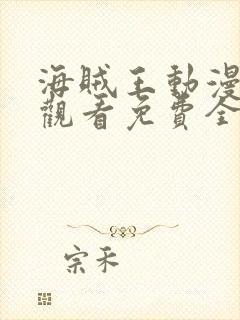 海贼王動漫
觀看免費全
宗禾